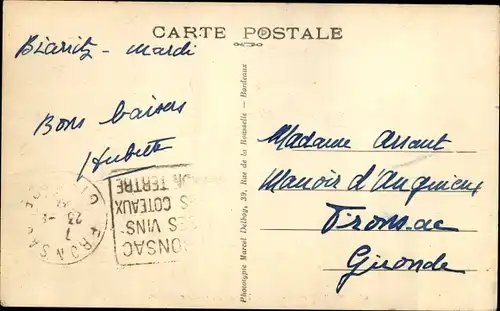 CARTE POSTALE
Biarritz - mardi
Bons baisers
Hubette
Phototypie Marcel Delboy, 39, Rue de la Rousselle - Bordeaux
Madame
Manoir d'
Fronsac
Gironde
FRONSAC
SES VINS
SES COTEAUX
SON TERTRE
FRONSAC
7
23